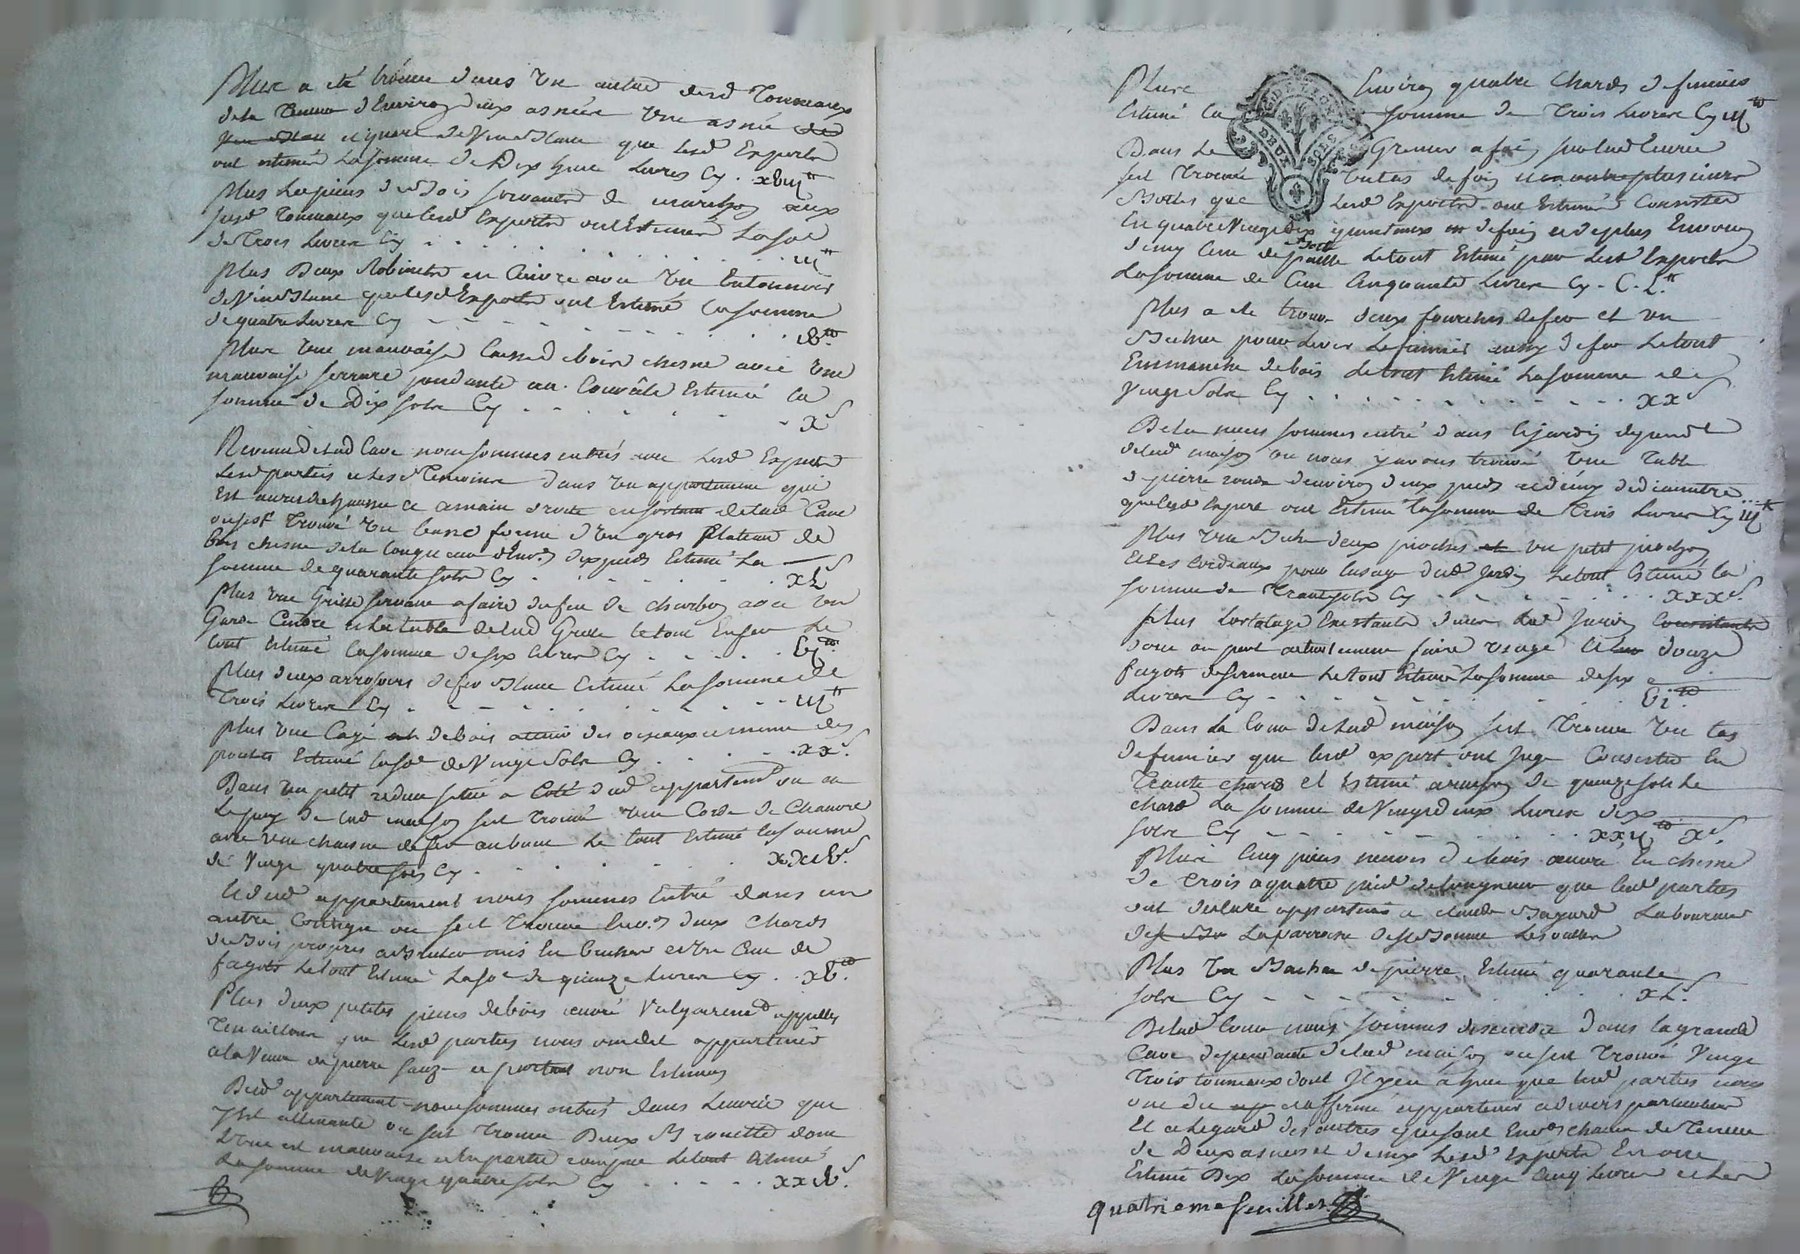 Plus a été trouvé dans un autre desd Tonneaux
dela Tenue d'Environ deux asnées une asnée
et quart de Vin Blanc que lesd Experts
ont estimés La somme de Dix huit Livres Cy . xviij tt
Plus Les pieces de Bois servantes de marchoy aux
susd Tonneaux que lesd Experts ont Estimés La so.e
de Trois Livres Cy . . . . . . iij tt
Plus Deux Robinets en Cuivre avec un Entonnoir
de fer Blanc que lesd Experts ont Estimé la somme
de quatre Livres Cy - - - - - iv tt
Plus une mauvaise Caisse de bois chesne avec une
mauvaise serrure pendante au Couvercle Estimée la
somme de Dix sols Cy - - - - - x s
De lad Cave nous sommes entrés avec lesd Experts
Lesd parties et les Temoins dans un appartement qui
Est au rez de chaussée a main droite en sortant de lad Cave
ou s'est Trouvé un banc formé d'un gros Plateau de
bois chesne de la longueur d'Env. dix pieds Estimé La
somme de quarante sols Cy . . . . . xL s
Plus une Grille servant a faire du feu de charbon avec un
Garde Cendre et La table de lad Grille le tout En fer Le
tout Estimé la somme de six livres Cy . . . . vj tt
Plus deux arrosoirs de fer Blanc Estimé La somme de
Trois Livres Cy . - - - - - iij tt
Plus une Cage de bois a tenir des oiseaux comme des
poulets Estimé la so.e de Vingt Sols Cy . . . xx s
Dans un petit reduit situé a Coté dud appartem.t ou a
Le puy de lad maison s'est Trouvé une Corde de Chanvre
avec une chaine de fer au bout Le tout Estimé la somme
de Vingt quatre sols Cy . . . . . xxiv s
Dud appartement nous sommes Entré dans un
autre Contigu ou s'est Trouvé Env. deux Chards
de Bois propres a Bruler mis En bucher et un Cent de
fagots Le tout Estimé La so.e de quinze Livres Cy . xv tt
Plus deux petites pieces de bois œuvré Vulgairem.t appellés
Tenaillons que Lesd parties nous ont dit appartenir
a la Veuve de pierre et partant non Estimés
Dud appartement nous sommes entrés dans L'ecurie que
y Est attenante ou s'est Trouvé Deux Brouette dont
L'une est mauvaise et En partie rompue Le tout Estimé
La somme de Vingt quatre sols Cy . . . . . xxiv s
Plus Environ quatre Chards de fumier
Estimé La somme de Trois Livres Cy iij tt
GD DE LYON
DEUX SOLS
Dans Le Grenier a foin sur lad Ecurie
s'est Trouvé un tas de foin plusieurs
Bottes que Lesd Experts ont Estimés Consister
En quatre Vingt Dix quintaux de foin et de plus Environ
demy Cent de paille Le tout Estimé par Lesd Experts
La somme de Cent Cinquante Livres Cy - C.L. tt
Plus a été trouvé deux fourches de fer et un
Bechu pour lever Le fumier aussy de fer Le tout
Emmanché de bois Le tout Estimé La somme de
Vingt Sols Cy . . . . . . . . xx s
De la nous sommes entré dans le jardin dependt
de lad maison ou nous y avons trouvé une Table
de pierre ronde d'environ deux pieds et demy de diamettre
que lesd Experts ont Estimé la somme de Trois Livres Cy iij tt
Plus une Beche deux pioches un petit piochon
et Les Cordeaux pour l'usage dud Jardin Le tout Estimé La
somme de Trente sols Cy - - - - xxx s
Plus L'ortolage Existante dans led Jardin
dont on peut actuellement faire usage et douze
fagots de sarment Le tout Estimé La somme de six
Livres Cy - - - - - vj tt
Dans La Cour de lad maison s'est Trouvé un tas
de fumier que lesd experts ont Jugé Consister En
Trente chards et Estimé a raison de quinze sols Le
chard La somme de Vingt deux Livres dix
sols Cy - - - - - - xxij tt x s
Plus Cinq pieces neuves de bois œuvré En chesne
de trois a quatre pieds de longueur que lesd parties
ont declaré appartenir a claude Laboureur
de La parroisse de
Plus un Bachat de pierre Estimé quarante
sols Cy - - - - - - xL s
De lad Cour nous sommes descendu Dans la grande
Cave dependante de lad maison ou s'est Trouvé Vingt
Trois tonneaux dont Il y en a huit que lesd parties nous
ont dit et affirmé appartenir a divers particuliers
Et a L'egard des autres qui sont Env. chacun de Tenue
de Deux asnées et demy Lesd Experts En ont
Estimé Dix La somme de Vingt Cinq Livres et Les
quatrieme feuillet